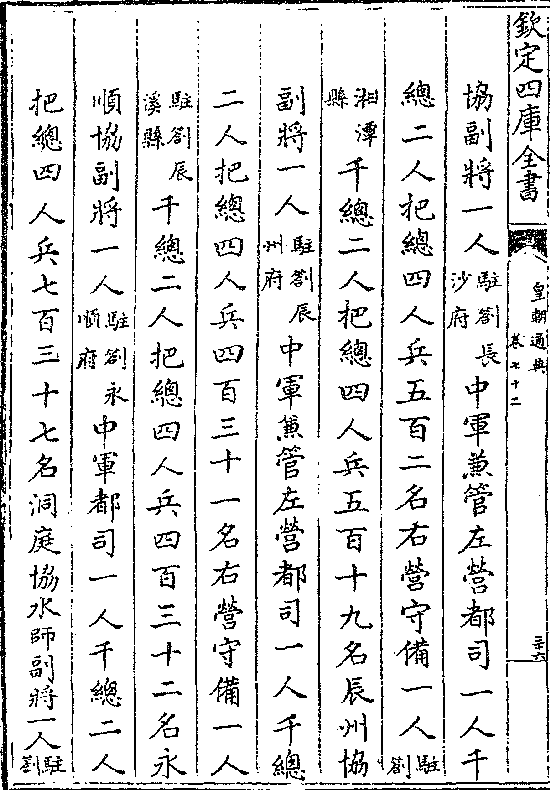 欽定四庫全書
皇朝通典
卷七十二
二十六
協副將一人駐劄長沙府中軍兼管左營都司一人千
總二人把總四人兵五百二名右營守備一人駐劄
湘潭縣千總二人把總四人兵五百十九名辰州協
副將一人駐劄辰州府中軍兼管左營都司一人千總
二人把總四人兵四百三十一名右營守備一人
駐劄辰溪縣千總二人把總四人兵四百三十二名永
順協副將一人駐劄永順府中軍都司一人千總二人
把總四人兵七百三十七名洞庭協水師副將一人駐劄